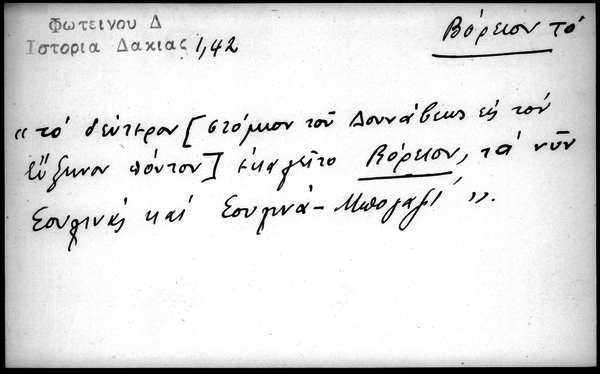 Φωτεινου Δ
Ιστορια Δακιας 1,42
Βόρειον τό
"τό δεύτερον [στόμιον τοῦ Δουνάβεως εἰς τόν
Εὔξεινον πόντον] ἐκαλεῖτο Βόρειον, τά νῦν
Σουλινάς καί Σουλινά-Μπογαζί".